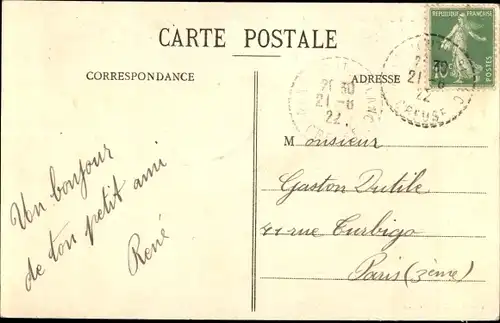 CARTE POSTALE
CORRESPONDANCE
ADRESSE
REPUBLIQUE FRANÇAISE
10
POSTES
21 30
21 -8
22
CREUSE
30
21 -8
22
CREUSE
Un bonjour
de ton petit ami
René
Monsieur
Gaston Dutile
41 rue Turbigo
Paris (3ème)